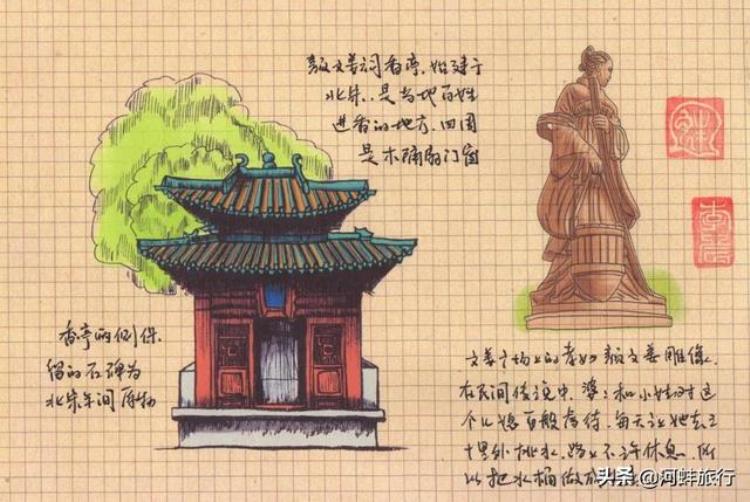 颜文姜祠香亭，始建于
北宋，是当地百姓
进香的地方，四周
是木隔扇门窗
香亭两侧保
留的石碑为
北宋年间原物
文姜广场上的孝妇颜文姜雕像，
在民间传说中，婆婆和小姑对这
个儿媳百般虐待，每天让她去三
十里外挑水，路上不许休息，所
以把水桶做成
头条 @河蚌旅行